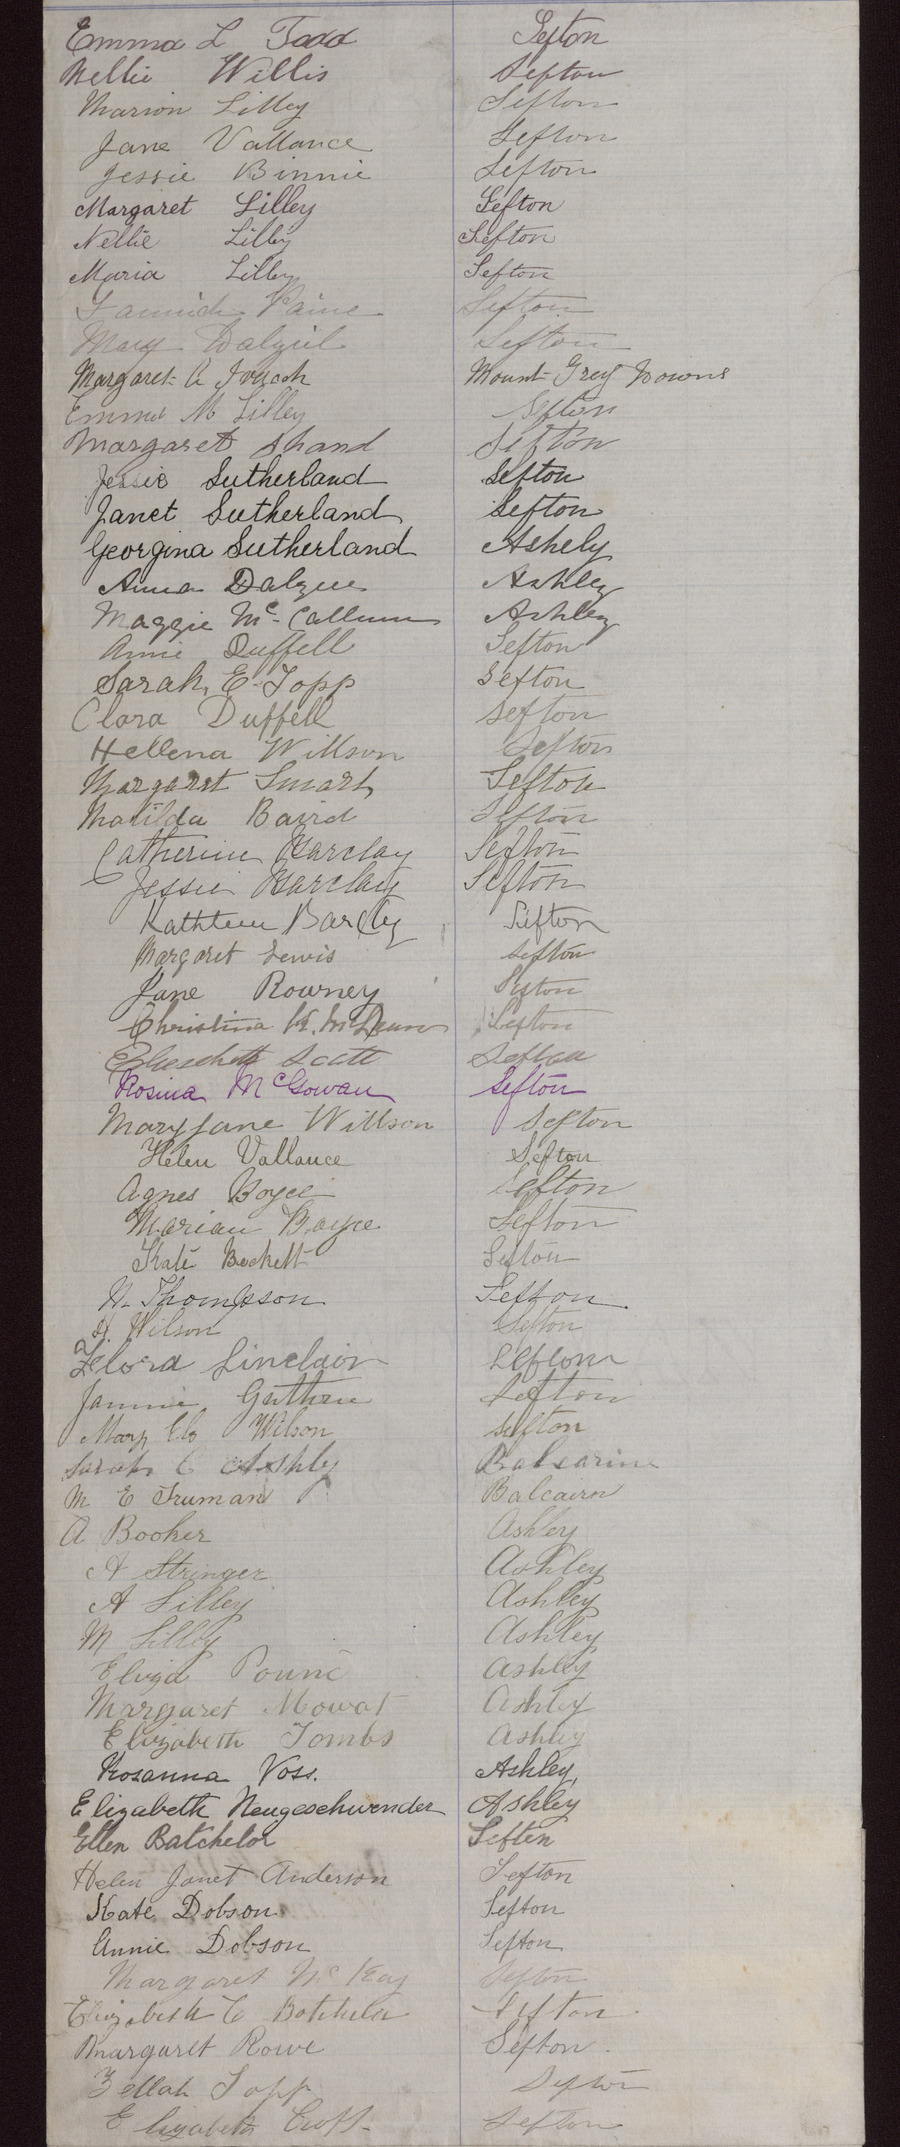 Emma L Todd Sefton
Nellie Willis Sefton
Marion Lilley Sefton
Jane Vallance Sefton
Jessie Binnie Sefton
Margaret Lilley Sefton
Nellie Lilley Sefton
Maria Lilley Sefton
Paine Sefton
Mary Dalziel Sefton
Margaret A Mount Grey Downs
Emma M Lilley Sefton
Margaret Shand Sefton
Jessie Sutherland Sefton
Janet Sutherland Sefton
Georgina Sutherland Ashely
Anna Ashley
Maggie Mc-Callum Ashley
Annie Duffell Sefton
Sarah, E Topp Sefton
Clara Duffell Sefton
Hellena Willson Sefton
Margaret Smart Sefton
Matilda Baird Sefton
Catherine Barclay Sefton
Jessie Barclay Sefton
Kathleen Barcly Sefton
Margaret Lewis Sefton
Jane Rowney Sefton
Christina Sefton
Scott Sefton
Rosina McGowan Sefton
Mary Jane Willson Sefton
Helen Vallance Sefton
Agnes Boyce Sefton
Marian Boyce Sefton
Kate Beckett Sefton
H. Thompson Sefton
H. Wilson Sefton
Flora Sinclair Sefton
Guthrie Sefton
Mary Wilson Sefton
Sarah C Ashby
M E Truman Balcairn
A Booker Ashley
A Stringer Ashley
A Lilley Ashley
M Lilley Ashley
Eliza Ashley
Margaret Mowat Ashley
Elizabeth Tombs Ashley
Rosanna Voss. Ashley,
Elizabeth Neugeschwender Ashley
Ellen Batchelor Sefton
Helen Janet Anderson Sefton
Kate Dobson Sefton
Annie Dobson Sefton
Margaret McKay Sefton
Elizabeth C Batchelor Sefton
Margaret Rowe Sefton
Zellah Topp Sefton
Elizabeth Croft Sefton